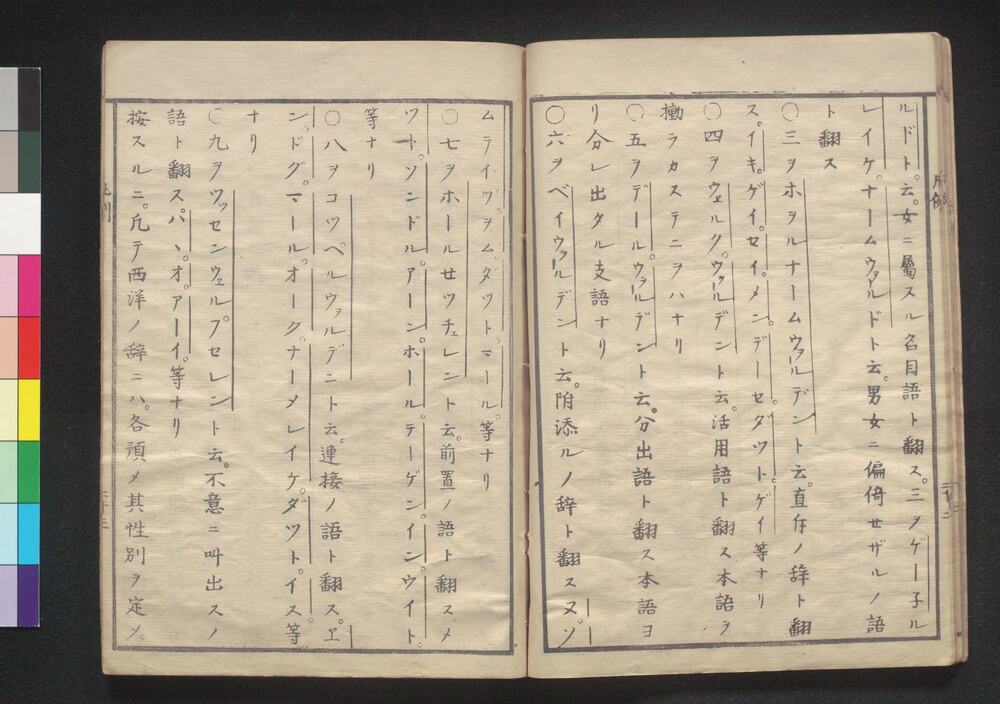 ルドト云。女ニ屬スル名目語ト翻ス。三ヲゲー子ル
レイケ。ナームウァルドト云。男女ニ偏倚セザルノ語
ト翻ス
〇三ヲホヲルナームウァールデント云。直斥ノ辞ト翻
ス。イキ。ゲイ。セイ。メン。デーセ。ダット。ゲイ等ナリ
〇四ヲウェルクウァールデント云。活用語ト翻ス本語ヲ
働ラカステニヲハナリ
〇五ヲデールウァールデント云。分出語ト翻ス本語ヨ
リ分レ出タル支語ナリ
〇六ヲベイウァールデント云。附添ルノ辞ト翻スヌ。ソ
ムテイヅ。ヲム。ダット。マール。等ナリ
〇七ヲホールセツチェレント云。前置ノ語ト翻スメ
ツト。ソンドル。アーン。ホール。テーゲン。イン。ウイト。
等ナリ
〇八ヲコツペルウァルデント云。連接ノ語ト翻ス。ヱ
ン。ドグ。マール。オーク。ナーメレイケ。ダツト。イス。等
ナリ
〇九ヲツッセンウェルプセレント云。不意ニ叫出スノ
語ト翻ス。パヽ。オ。アーイ。等ナリ
按スルニ。凡テ西洋ノ辞ニハ。各預メ其性別ヲ定メ。
凡例